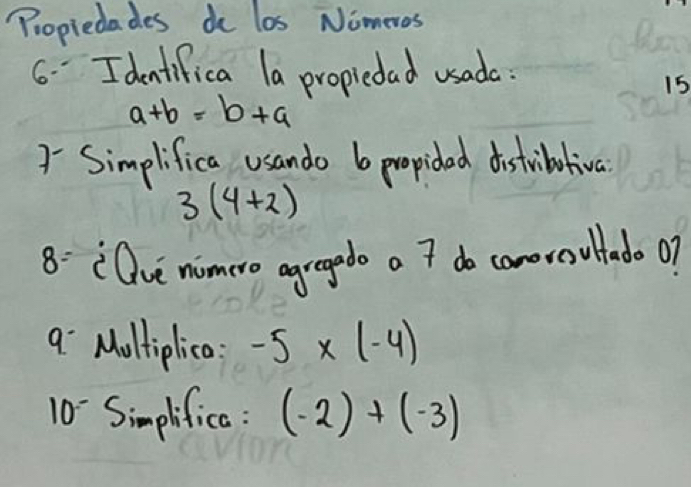 Propiedades de los Números
6-- Identifica la propiedad usada:
15
a+b = b+a
7- Simplifica usando la propidad distributiva:
3(4+2)
8- ¿Qué número agregado a 7 da como resultado 0?
9- Multiplica: -5 x (-4)
10- Simplifica: (-2) + (-3)
avion